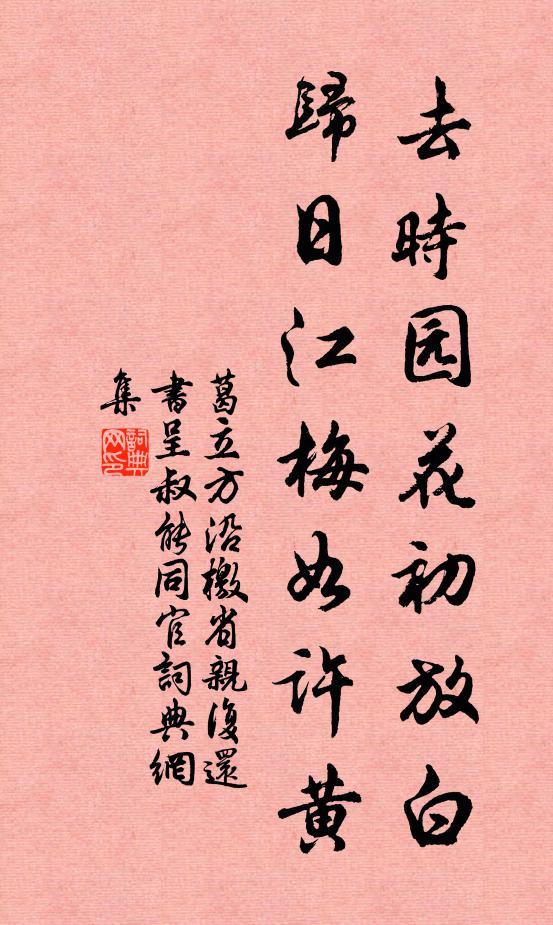 去時园花初放白
歸日江梅如許黄
葛立方沿檄省親復還
書呈叔能同官詞典網
集
詞典
网印